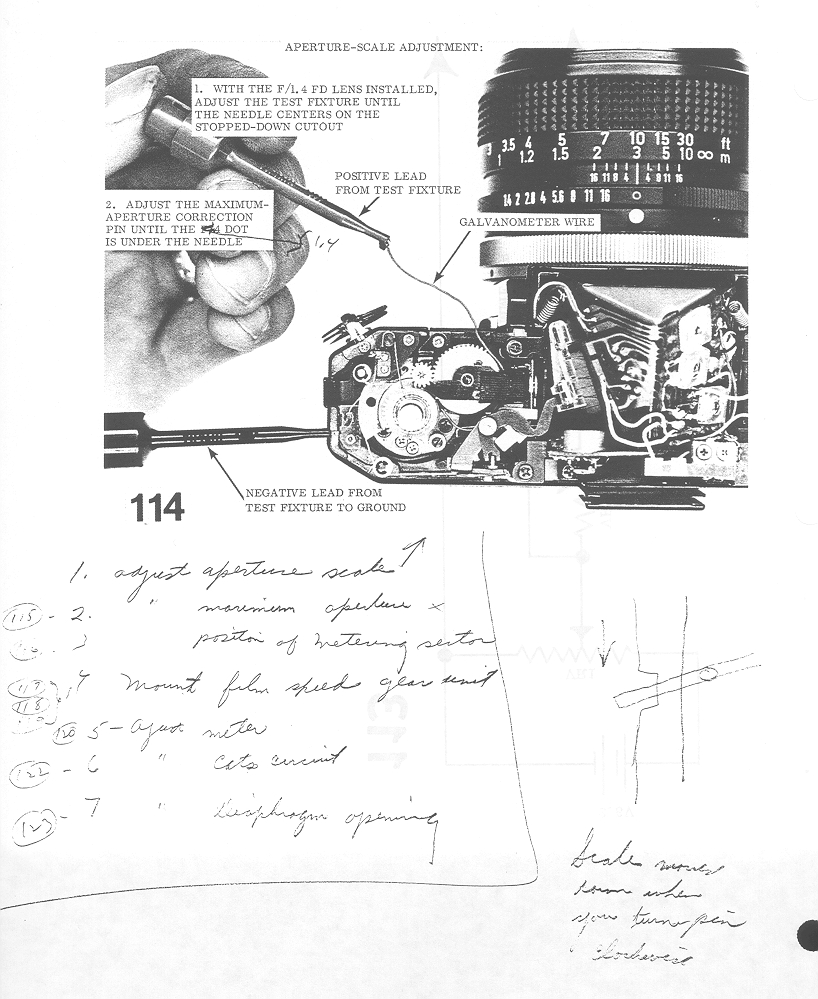 APERTURE-SCALE ADJUSTMENT:
1. WITH THE F/1.4 FD LENS INSTALLED,
ADJUST THE TEST FIXTURE UNTIL
THE NEEDLE CENTERS ON THE
STOPPED-DOWN CUTOUT
POSITIVE LEAD
FROM TEST FIXTURE
2. ADJUST THE MAXIMUM-
APERTURE CORRECTION
PIN UNTIL THE DOT
IS UNDER THE NEEDLE
1.4
GALVANOMETER WIRE
3.5 4 5 7 10 15 30 ft
1 1.2 1.5 2 3 5 10 ∞ m
16 11 8 4 4 8 11 16
1.4 2 2.8 4 5.6 8 11 16
NEGATIVE LEAD FROM
TEST FIXTURE TO GROUND
114
1. adjust aperture scale
115 - 2. " maximum aperture x
3 position of metering sector
117 118 4 Mount film speed gear unit
120 5 - Ajust meter
122 - 6 " Cats circuit
123 - 7 " Diaphragm opening
113
Scale moves
down when
you turn pin
clockwise